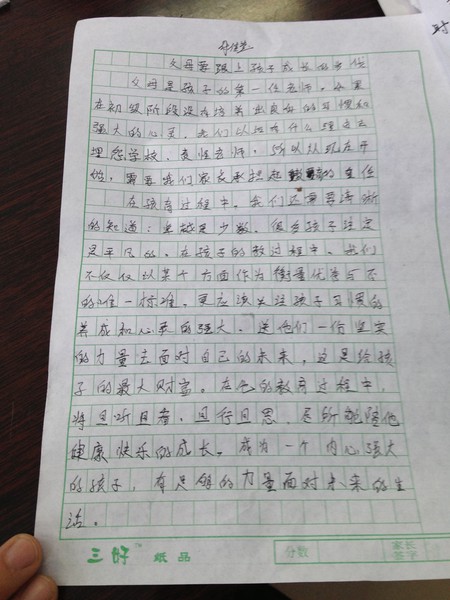 父母要跟上孩子成长的步伐
父母是孩子的第一任老师，如果
在初级阶段没有培养出良好的习惯和
强大的心灵，我们以后有什么理由去
埋怨学校、责怪老师，所以从现在开
始，需要我们家长承担起 的责任
在孩育过程中，我们还需要清晰
的知道：卓越是少数，很多孩子注定
是平凡的，在孩子的教过程中，我们
不仅仅以某个方面作为衡量优秀与否
的唯一标准，更应该关注孩子习惯的
养成和心灵的强大，送他们一份坚实
的力量去面对自己的未来，这是给孩
子的最大财富。在他的教育过程中，
将且听且看，且行且思，尽所能陪他
健康快乐的成长，成为一个内心强大
的孩子，有足够的力量面对未来的生
活。
三好 纸品
分数
家长
签字
对